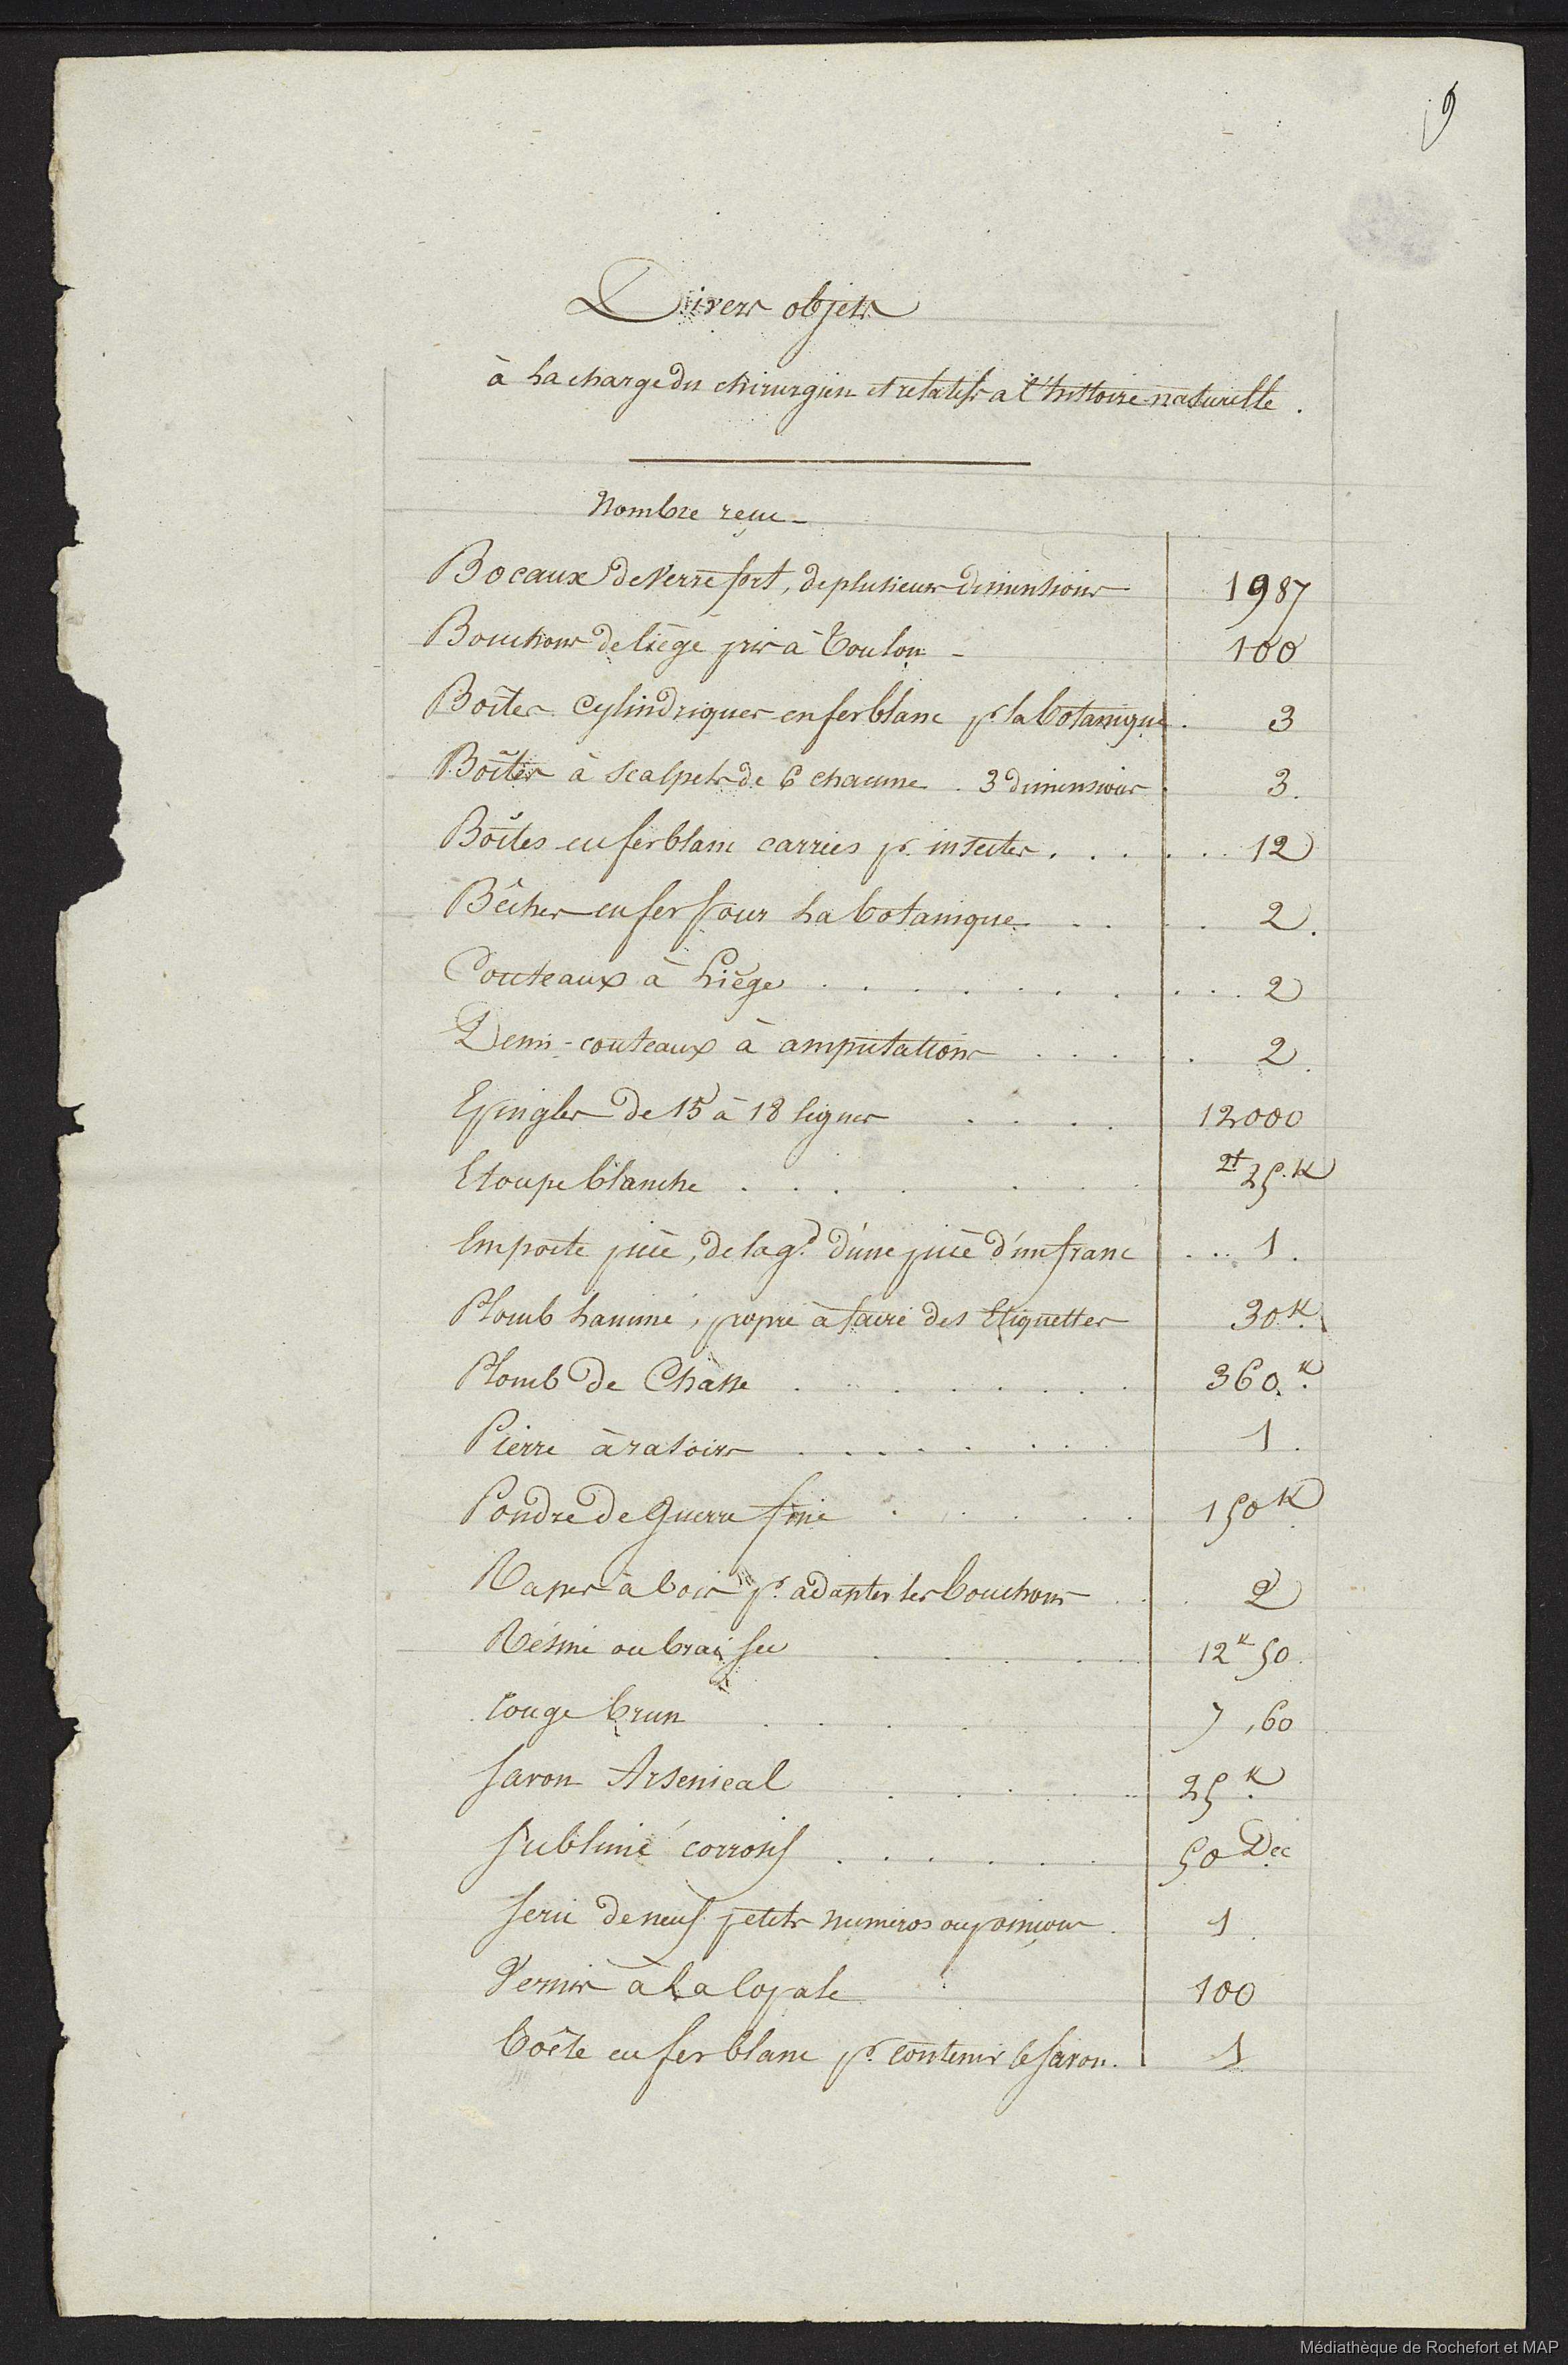 9
Divers objets
à la charge du chirurgien et relatifs a l'histoire naturelle.
Nombre reçu -
Bocaux de verre fort, de plusieurs dimensions 1987
Bouchons de liège pris à Toulon - 100
Boîtes cylindriques en fer blanc pr la botanique . 3
Boîtes à scalpels de 6 chacune . 3 dimensions . 3.
Boîtes en fer blanc carrées pr. insectes . . . . . . 12
Bêches en fer pour la botanique . . . . 2.
Couteaux à liège . . . . . . . . . . 2
Demi-couteaux à amputations . . . . . 2.
Epingles de 15 à 18 lignes . . . . 12000
Etoupe blanche . . . . . . 25.K
Emporte pièce, de la gr. d'une pièce d'un franc . . . 1.
Plomb laminé, propre à faire des Etiquettes 30K.
Plomb de Chasse . . . . . . . 360.K
Pierre à rasoirs . . . . . . . . 1.
Poudre de guerre fine . . . . . 150K
Rapes à bois pr. adapter les bouchons . . 2
Résine ou brai sec . . . . . 12K 50.
rouge brun . . . . 7,60
Savon Arsenical . . . . . 25K.
Sublimé corrosif . . . . . . 50 Dec
Serie de neuf petits numéros ou poinçons . 1.
Vernis à la copale 100
boîte en fer blanc pr. contenir le savon. 1
Médiathèque de Rochefort et MAP